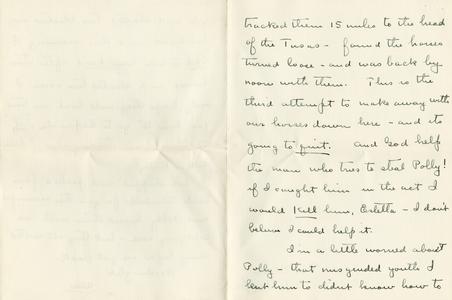 tracked them 15 miles to the head
of the Tusas - found the horses
turned loose - and was back by
noon with them. This is the
third attempt to make away with
our horses down here - and its
going to quit. And God help
the man who tries to steal Polly!
if I caught him in the act I
would kill him, Estella - I don't
believe I could help it.
I'm a little worried about
Polly - that misguided youth I
lent him to didn't know how to